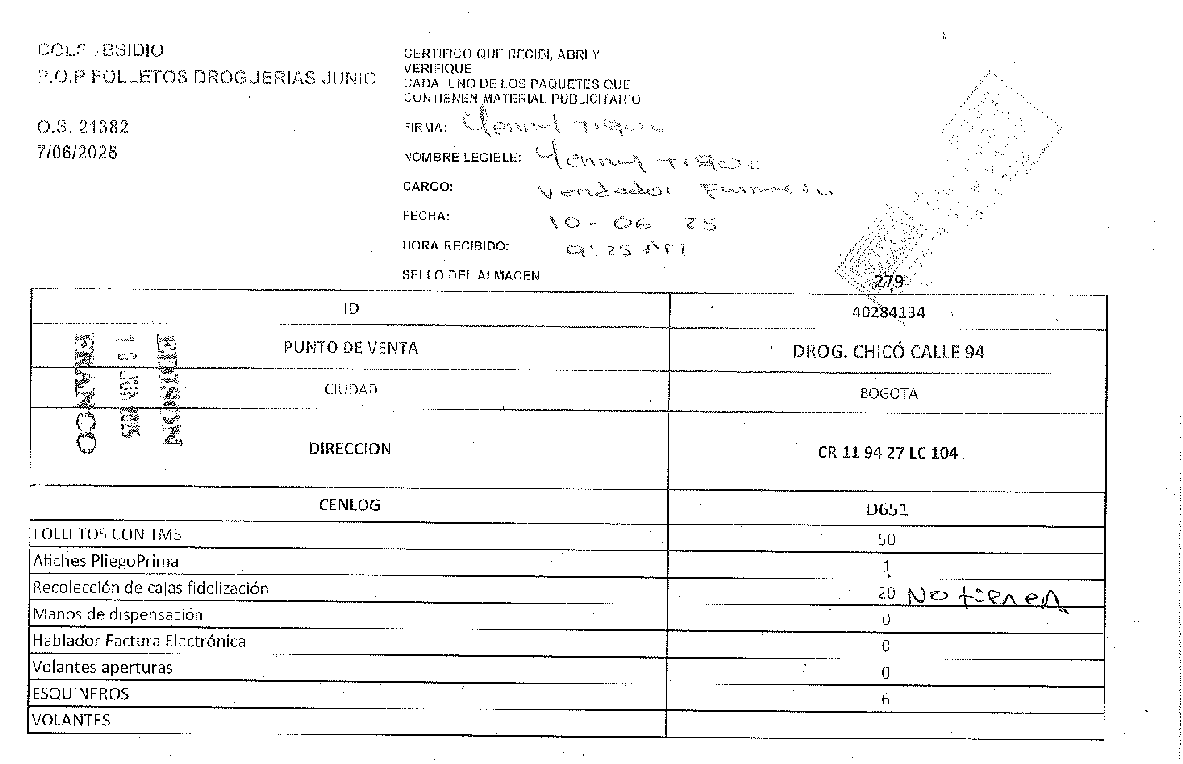 COLSUBSIDIO
P.O.P FOLLETOS DROGUERIAS JUNIO
O.S. 21382
7/06/2025
CERTIFICO QUE RECIBI, ABRI Y
VERIFIQUE
CADA UNO DE LOS PAQUETES QUE
CONTIENEN MATERIAL PUBLICITARIO
FIRMA:
NOMBRE LEGIBLE:
CARGO: Vendedor
FECHA: 10-06 25
HORA RECIBIDO: 9:25 AM
SELLO DEL ALMACEN
279
ID 40284134
PUNTO DE VENTA DROG. CHICÓ CALLE 94
CIUDAD BOGOTA
DIRECCION CR 11 94 27 LC 104
CENLOG D651
FOLLETOS CON TMS 50
Afiches PliegoPrima 1
Recolección de cajas fidelización 20 No tienen
Manos de dispensación 0
Hablador Factura Electrónica 0
Volantes aperturas 0
ESQUINEROS 6
VOLANTES
FRANCO